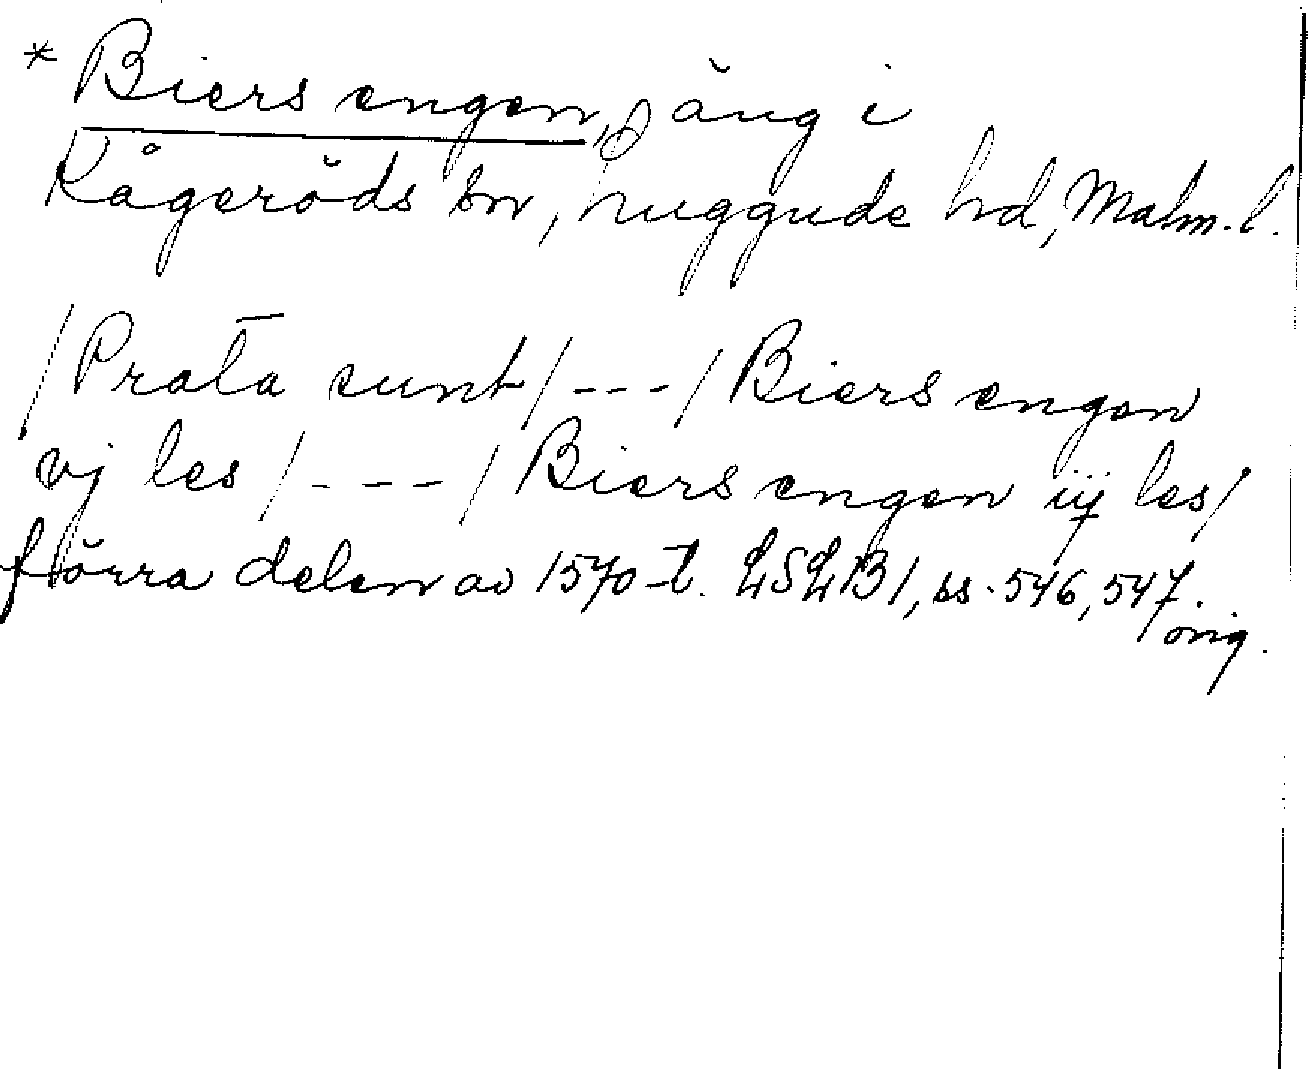 * Biers engen, äng i
Kågeröds sn, Luggude hd, Malm. l.
/Prata sunt/---/Biers engen
vj les /---/Biers engen iij les/
förra delen av 1570-t. LSLB1, ss. 546, 547.
orig.